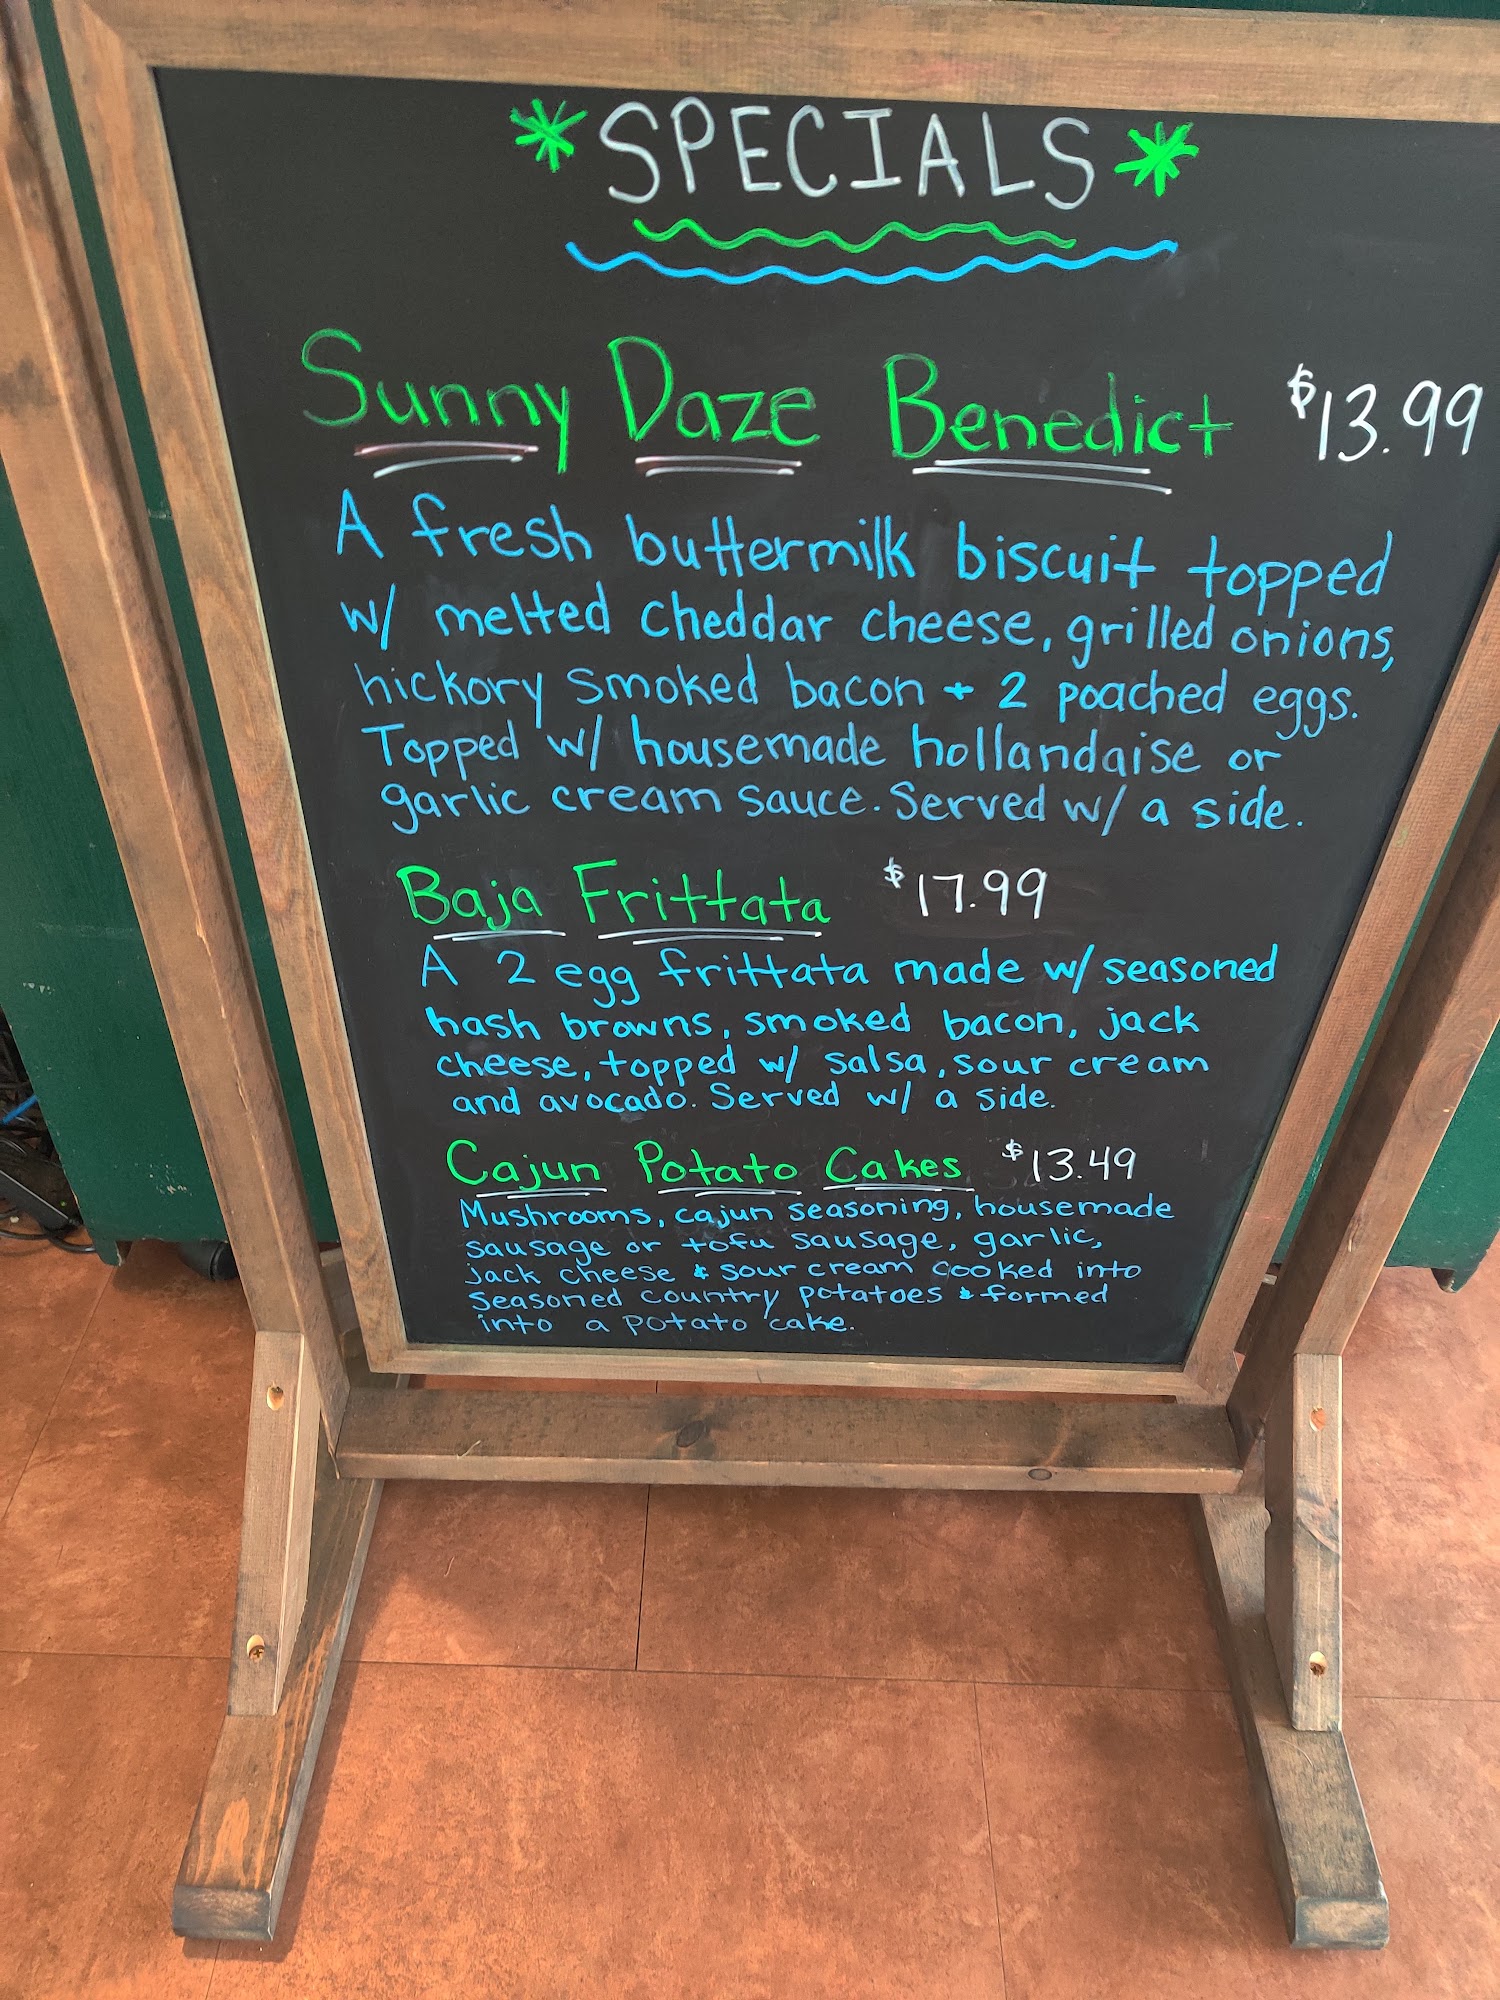 *SPECIALS*
Sunny Daze Benedict $13.99
A fresh buttermilk biscuit topped
w/ melted cheddar cheese, grilled onions,
hickory smoked bacon + 2 poached eggs.
Topped w/ housemade hollandaise or
garlic cream sauce. Served w/ a side.
Baja Frittata $17.99
A 2 egg frittata made w/ seasoned
hash browns, smoked bacon, jack
cheese, topped w/ salsa, sour cream
and avocado. Served w/ a side.
Cajun Potato Cakes $13.49
Mushrooms, cajun seasoning, housemade
sausage or tofu sausage, garlic,
jack cheese & sour cream cooked into
seasoned country potatoes & formed
into a potato cake.